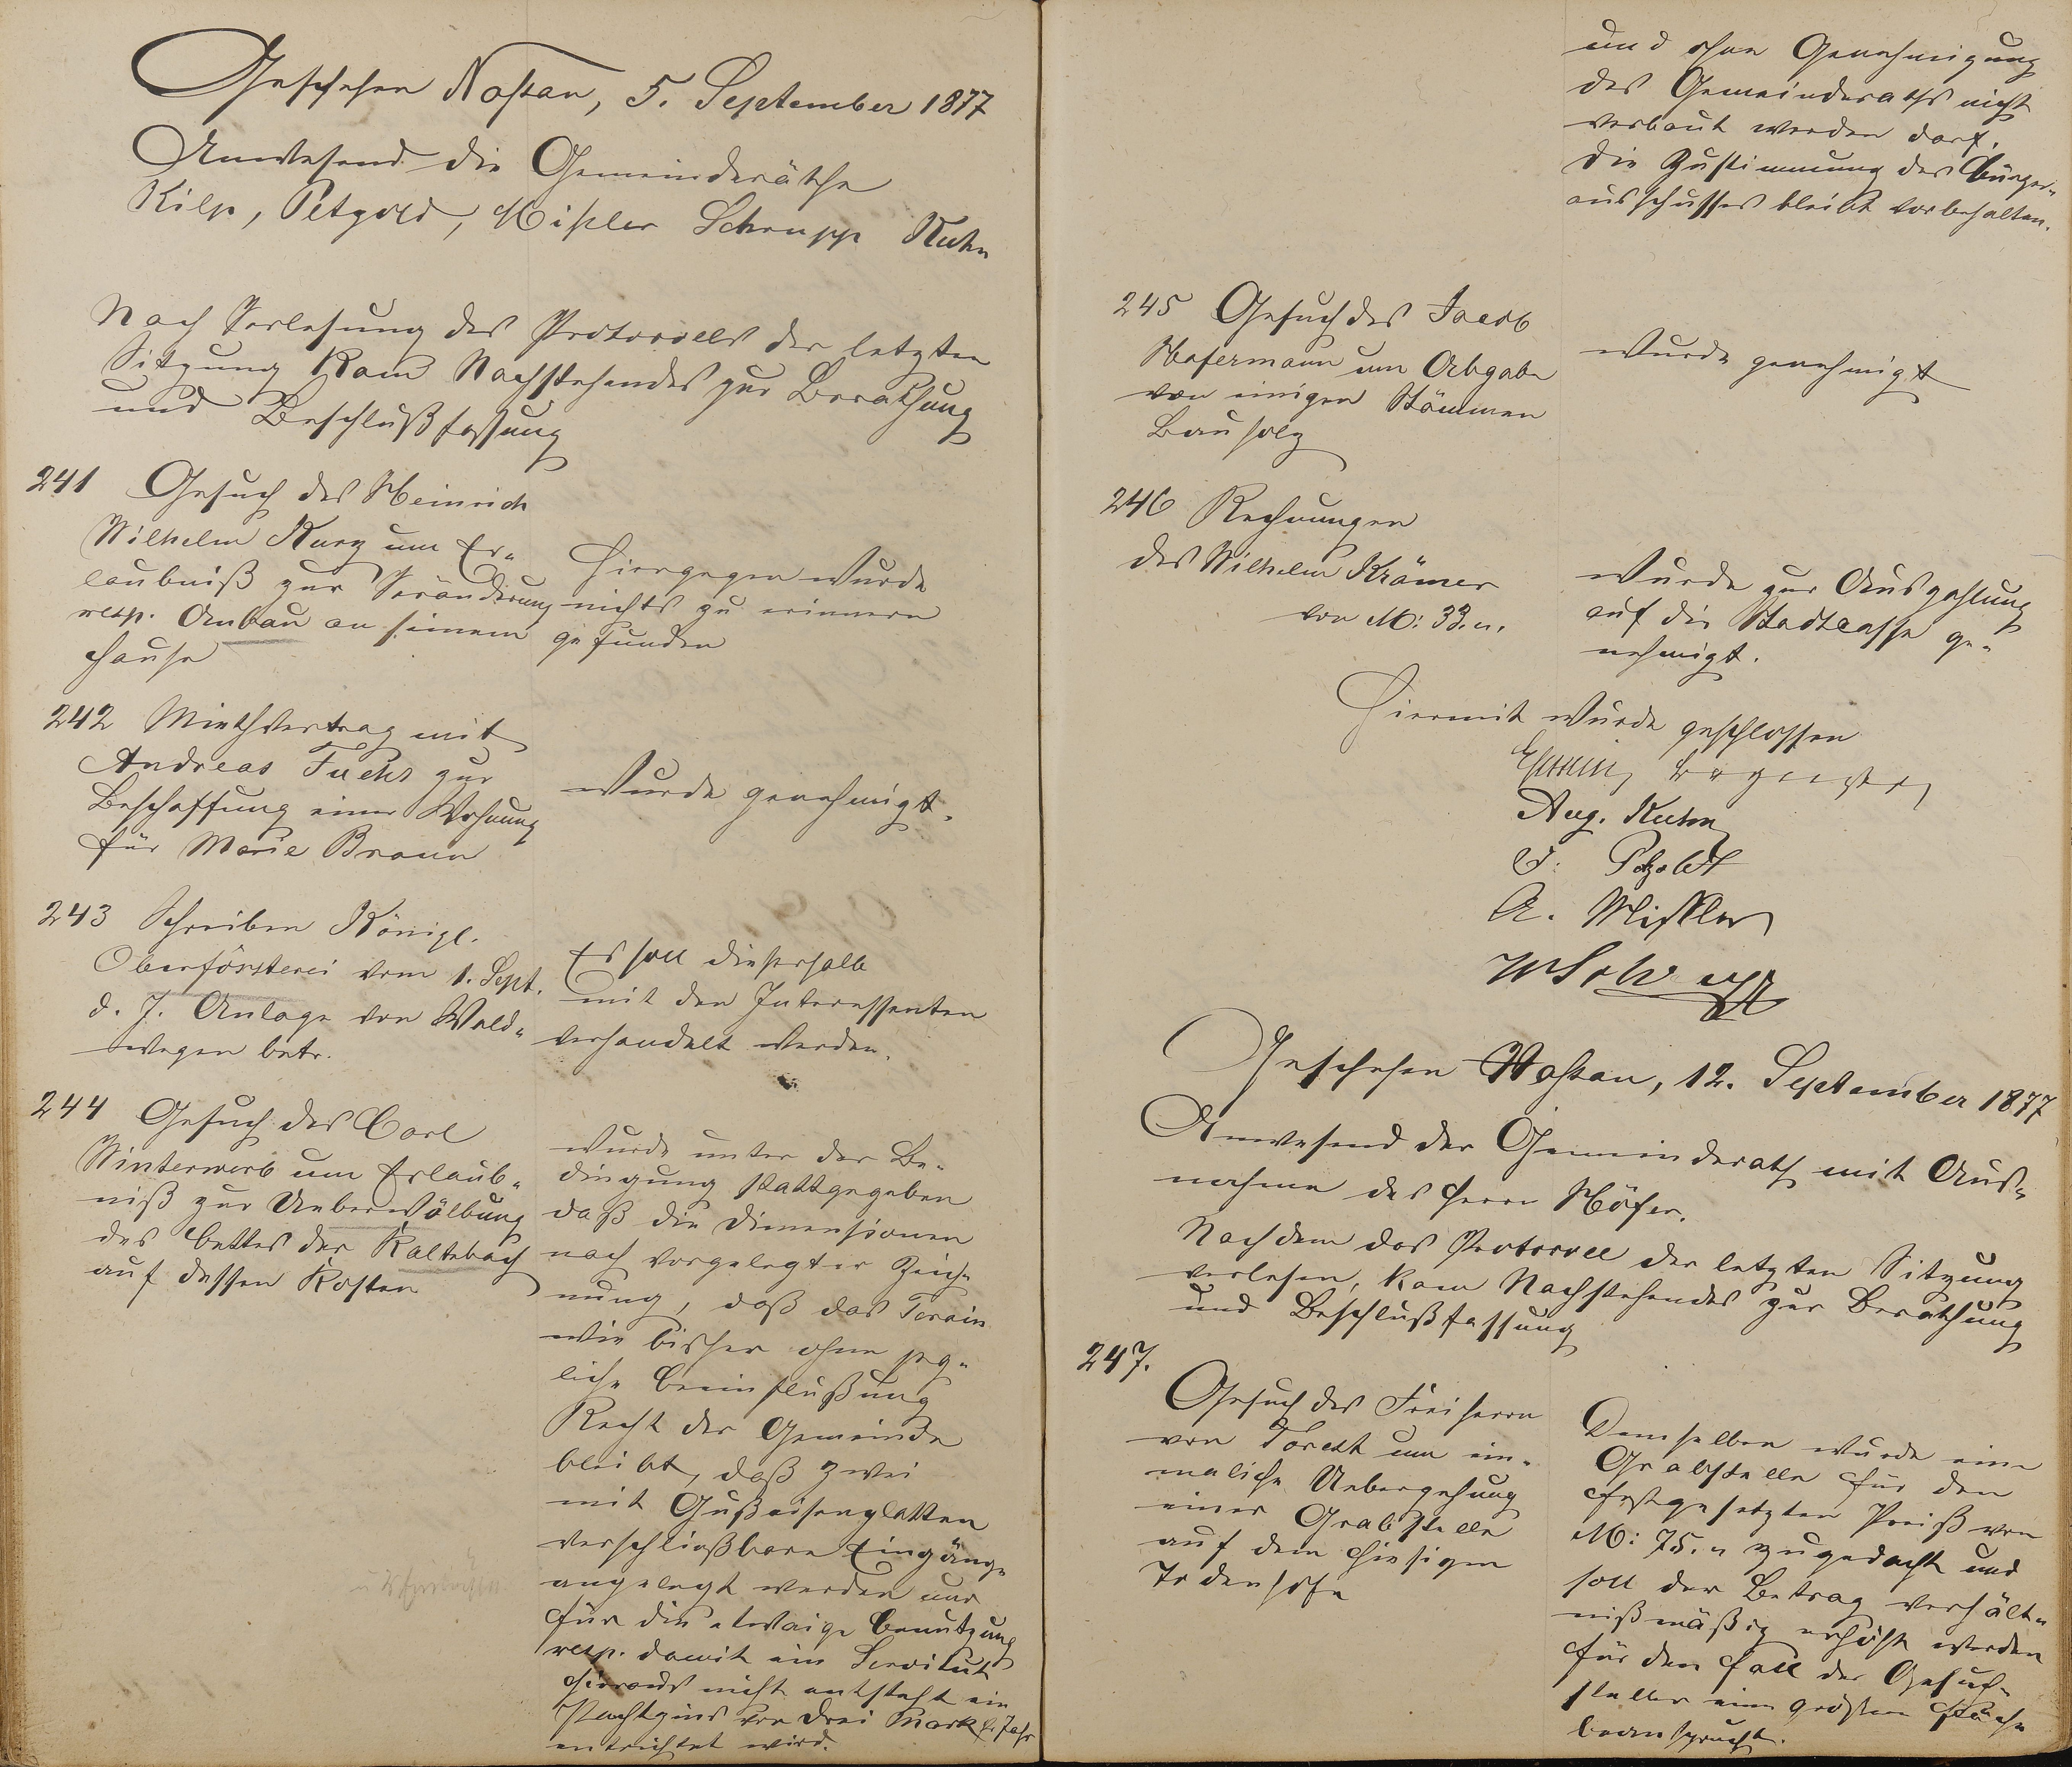 Geschehen Naßau, 5. September 1877
Anwesend die Gemeinderäthe
Kilp, Petzold, Mißler Schrupp Kuhn
Nach Verlesung des Protocolls der letzten
Sitzung kam Nachstehendes zur Berathung
und Beschlußfassung
241 Gesuch des Heinrich
Wilhelm Kurz um Er-
laubniß zur Veränderung
resp. Anbau an seinem
Hause
Hiergegen wurde
nichts zu erinnern
gefunden
242 Miethvertrag mit
Andreas Fuchs zur
Beschaffung einer Wohnung
für Marie Braun
wurde genehmigt.
243 Schreiben Königl.
Oberförsterei vom 1. Sept.
d. J. Anlage von Wald-
wegen betr.
Es soll dieserhalb
mit den Interessenten
verhandelt werden.
244 Gesuch des Carl
Winterwerb um Erlaub-
niß zur Ueberwölbung
des Bettes der Kaltebach
auf dessen Kosten
wurde unter der Be-
dingung stattgegeben
daß die Dimensionen
nach vorgelegter Zeich-
nung, daß das Terain
wie bisher ohne jeg-
liche Beeinflußung
Recht der Gemeinde
bleibt, daß zwei
mit Gußeisenplatten
verschließbare Eingänge
angelegt werden und
für die etwaige Benutzung
resp. damit ein Servitut
hieraus nicht entsteht ein
Pachtzins von drei Mark p. Jahr
entrichtet wird.
und ohne Genehmigung
des Gemeinderaths nicht
verbaut werden darf.
Die Zustimmung des Bürger-
ausschusses bleibt vorbehalten.
245 Gesuch des Jacob
Hafermann um Abgabe
von einigen Stämmen
Bauholz
wurde genehmigt
246 Rechnungen
des Wilhelm Krämer
von M: 33.„.
wurde zur Auszahlung
auf die Stadtcasse ge-
nehmigt.
Hiermit wurde geschlossen
Aug. Kuhn
Petzoldt
A. Mißler
Geschehen Naßau, 12. September 1877
Anwesend der Gemeinderath mit Aus-
nahme des Herrn Höfer.
Nachdem das Protocoll der letzten Sitzung
verlesen, kam Nachstehendes zur Berathung
und Beschlußfassung
247.
Gesuch des Freiherrn
von um ein-
maliche Uebergehung
einer Grabstelle
auf dem hiesigen
Todenhofe
Demselben wurde eine
Grabstelle für den
festgesetzten Preiß von
M: 75.„ zugedacht und
soll der Betrag verhält-
nißmäßig erhöht werden
für den Fall der Gesuch-
steller eine größere Fläche
beansprucht.